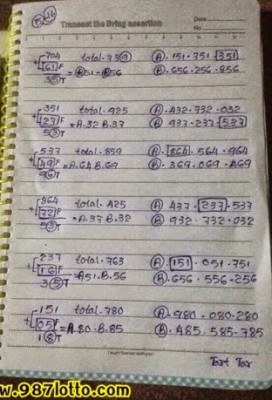 Transcent the living assertion
Date
704 total. 759 A. 151. 751 351
+ 61 F = A51. B56 B. 656. 256. 856
351 total. 925 A. 432. 732. 032
+ 27 F = A. 32 B. 37 B. 937. 237. 537
5 T
537 total. 859 A. 864. 564. 964
+ 49 F = A. 64 B. 69 B. 369. 069. 469
9 T
864 total. 425 A. 437. 237. 537
+ 72 F = A. 37 B. 32 B. 932. 732. 032
5 T
237 total. 763 A. 151. 051. 751
+ 16 F = A51. B. 56 B. 656. 556. 256
3 5 T
151 total. 780 A. 980. 080. 280
+ 05 F = A. 80. B. 85 B. 485. 585. 785
1 8 T
www.987lotto.com